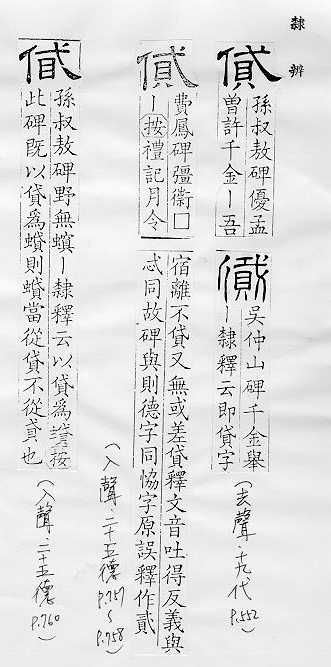 隸辨
貸
孫叔敖碑優孟
曾許千金ー吾
吳仲山碑千金舉
ー隸釋云即貸字
(去聲·十九代 P.552)
貸
費鳳碑彊衛□
ー按禮記月令
宿離不貸又無或差貸釋文音吐得反義與
忒同故碑與則德字同恊字原誤釋作貳
(入聲·二十五德 P.757~P.758)
貸
孫叔敖碑野無螟ー隸釋云以貸爲蟘按
此碑既以貸爲蟘則蟘當從貸不從貣也
(入聲·二十五德 P.760)